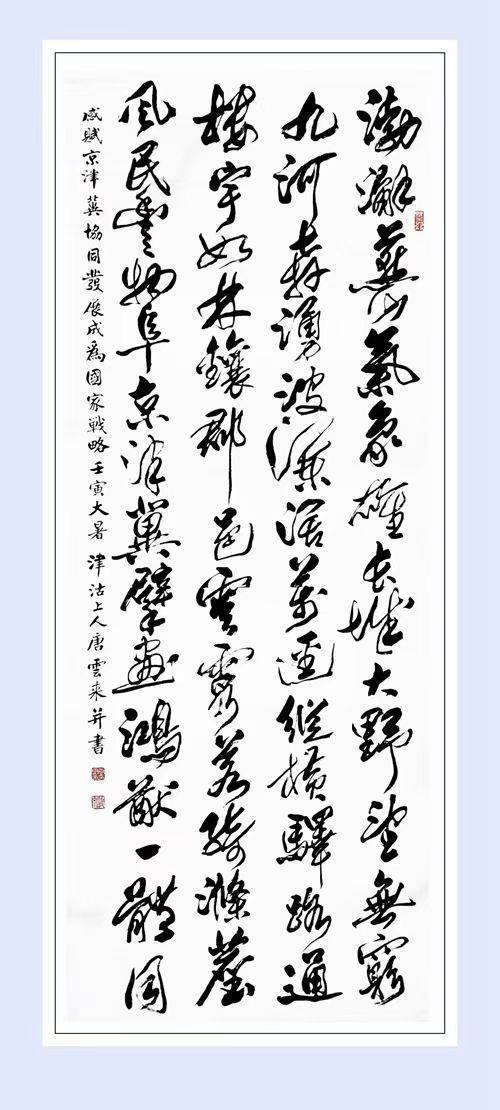 渤澥燕山氣象雄長城大野望無窮
九河奔湧波濤濶萬逕縱橫驛路通
樓宇如林鑲郡邑雲霞若綺滌塵
風民豐物阜京津冀擘畫鴻猷一體同
感賦京津冀協同發展成爲國家戰略壬寅大暑 津沽上人唐雲來并書